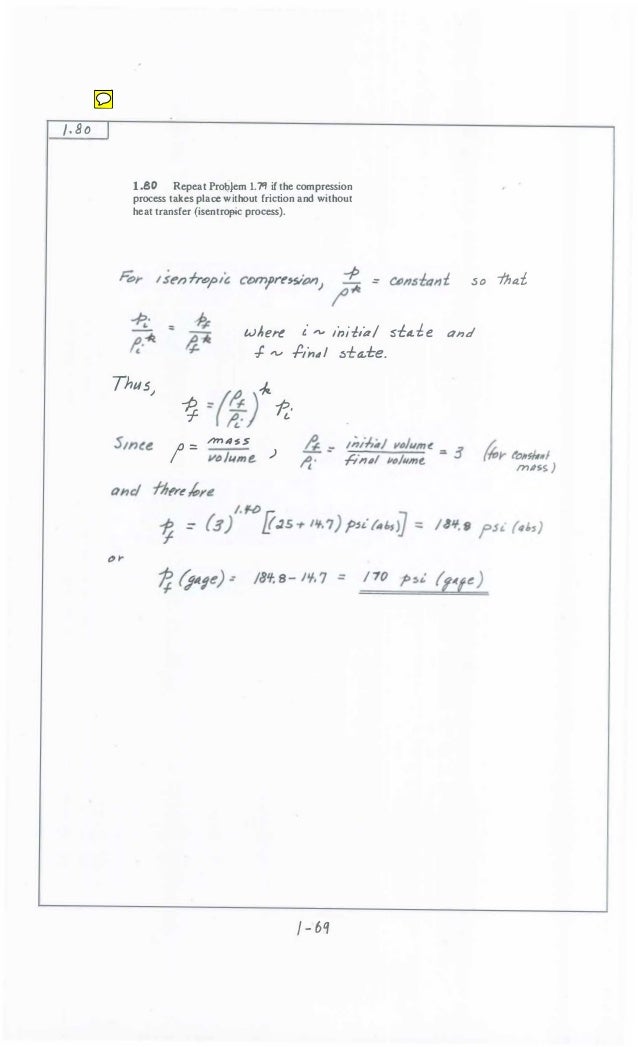 1.80
1.80 Repeat Problem 1.79 if the compression
process takes place without friction and without
heat transfer (isentropic process).
For isentropic compression, p/ρ^k = constant so that
p_i/ρ_i^k = p_f/ρ_f^k where i ~ initial state and
f ~ final state.
Thus,
p_f = (ρ_f/ρ_i)^k p_i
Since ρ = mass/volume , ρ_f/ρ_i = initial volume/final volume = 3 (for constant
mass)
and therefore
p_f = (3)^1.40 [(25 + 14.7) psi (abs)] = 184.8 psi (abs)
or
p_f (gage) = 184.8 - 14.7 = 170 psi (gage)
1-69